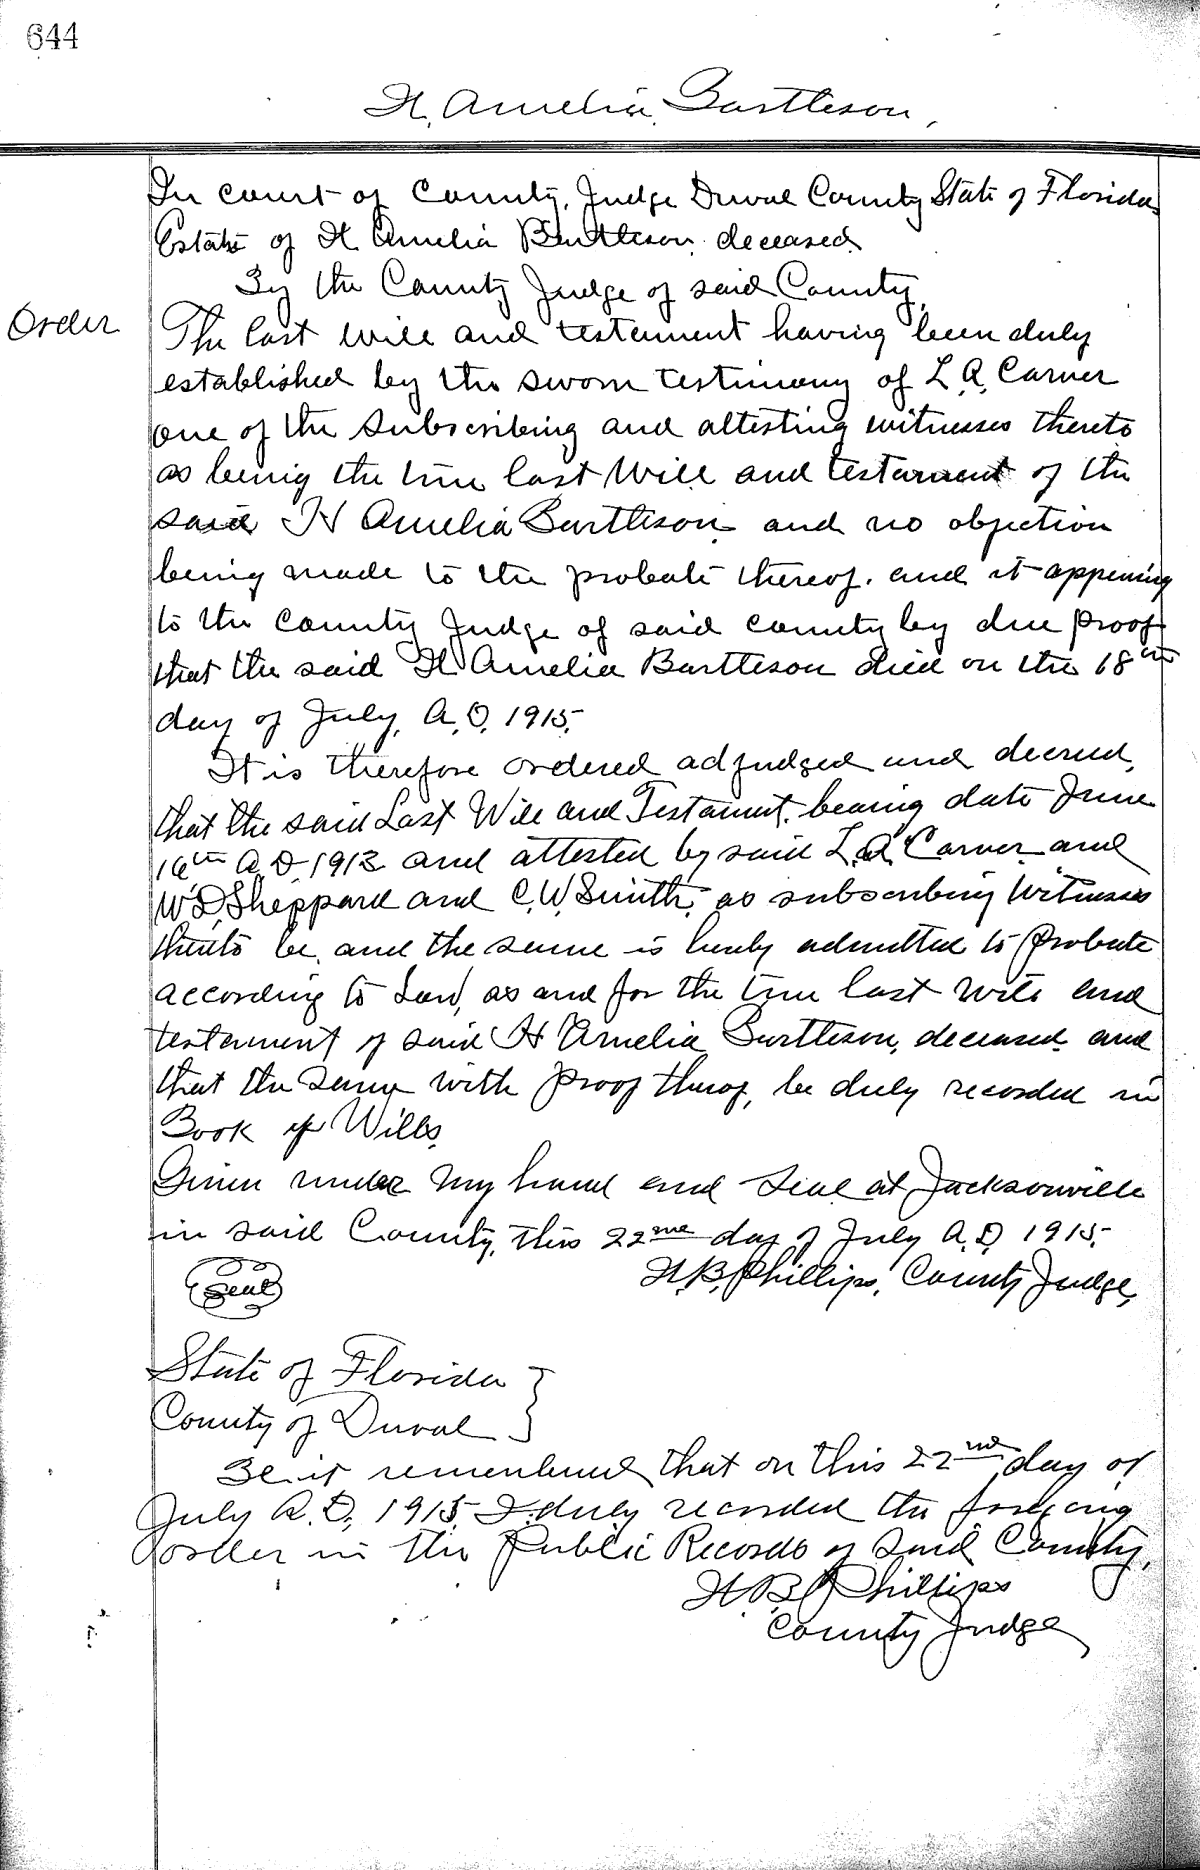 644
H. Amelia Bartleson,
In court of County, Judge Duval County State of Florida
Estate of H Amelia Bartleson, deceased.
By the County Judge of said County,
Order
The last will and testament having been duly
established by the sworn testimony of L. A. Carver
one of the subscribing and attesting witnesses thereto
as being the true last Will and testament of the
said H Amelia Bartleson and no objection
being made to the probate thereof. and it appearing
to the County Judge of said county by due proof
that the said H Amelia Bartleson died on the 18th
day of July, A.D. 1915.
It is therefore ordered adjudged and decreed,
that the said Last Will and Testament, bearing date June
16th A.D. 1913 and attested by said L. A. Carver and
W.D. Sheppard and C.W. Smith, as subscribing Witnesses
thereto be, and the same is hereby admitted to probate
according to Law, as and for the true last will and
testament of said H Amelia Bartleson, deceased, and
that the Same with proof thereof, be duly recorded in
Book of Wills.
Given under my hand and Seal at Jacksonville
in said County, this 22nd day of July A.D. 1915.
Seal
H.B. Phillips, County Judge,
State of Florida }
County of Duval }
Be it remembered, that on this 22nd day of
July A.D. 1915, I duly recorded the foregoing
order in the Public Records of said County,
H.B. Phillips
County Judge